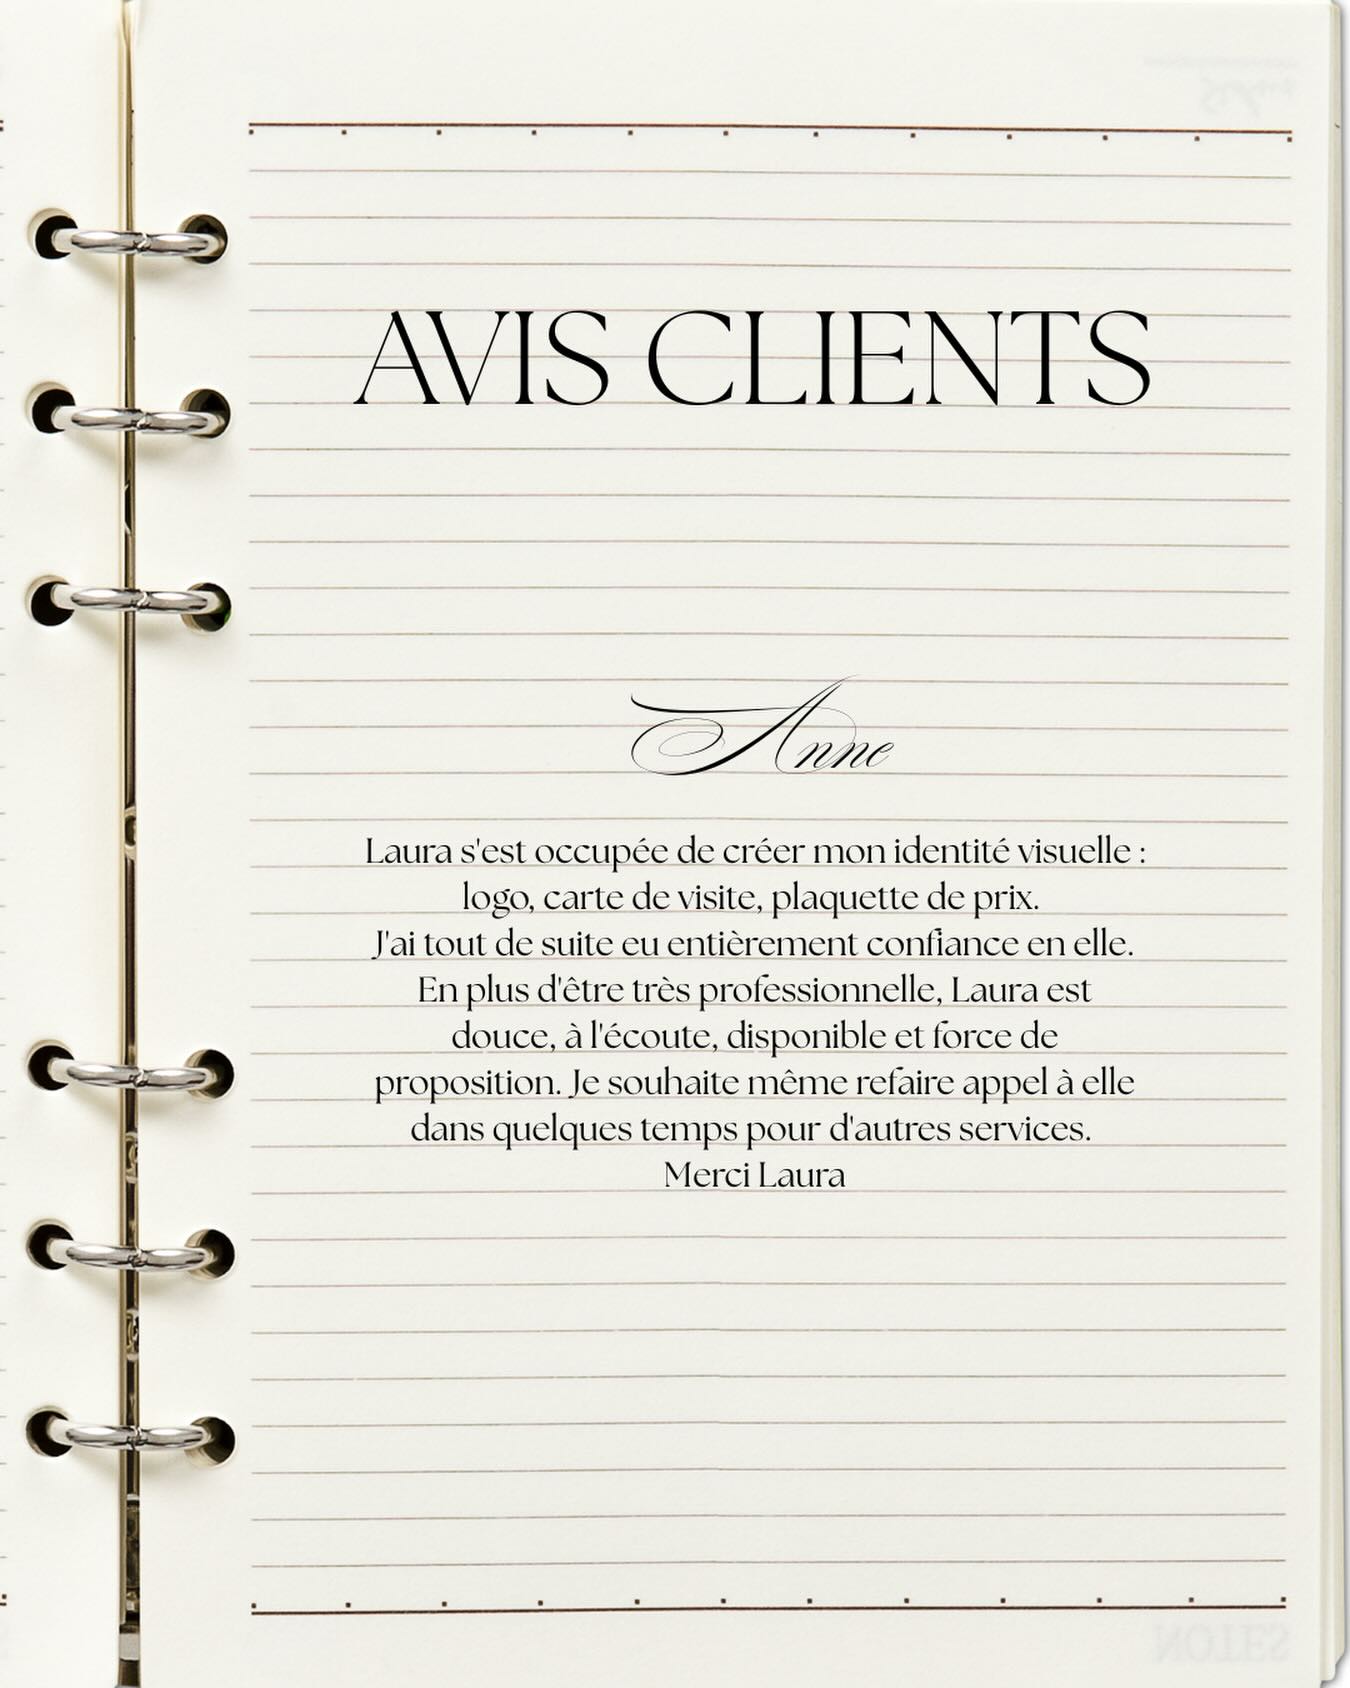 AVIS CLIENTS
Anne
Laura s'est occupée de créer mon identité visuelle :
logo, carte de visite, plaquette de prix.
J'ai tout de suite eu entièrement confiance en elle.
En plus d'être très professionnelle, Laura est
douce, à l'écoute, disponible et force de
proposition. Je souhaite même refaire appel à elle
dans quelques temps pour d'autres services.
Merci Laura
NOTES